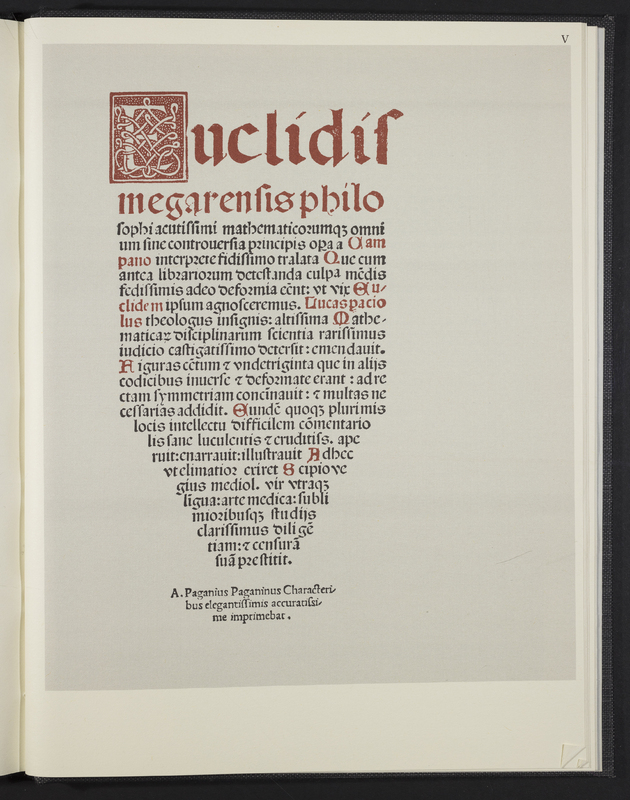 V
Euclidiſ
megarenſis philo
ſophi acutiſſimi mathematicorumqꝫ omni
um ſine controuerſia principis oꝑa a Cam
pano interprete fidiſſimo tralata Que cum
antea librariorum deteſtanda culpa mẽdis
fędiſſimis adeo deformia eẽnt: vt vix Eu-
clidem ipſum agnoſceremus. Lucas pacio
lus theologus inſignis: altiſſima Mathe-
maticaꝝ diſciplinarum ſcientia rariſſimus
iudicio caſtigatiſſimo deterſit: emendauit.
Figuras cẽtum ⁊ vndetriginta que in alijs
codicibus inuerſe ⁊ deformate erant: ad re
ctam ſymmetriam concinnauit: ⁊ multas ne
ceſſarias addidit. Eundẽ quoqꝫ plurimis
locis intellectu difficilem cõmentario
lis ſane luculentis ⁊ eruditiſs. ape
ruit: enarrauit: illuſtrauit Adhec
vt elimatior exiret Scipio ve
gius mediol. vir vtraqꝫ
ligua: arte medica: ſubli
mioribuſqꝫ ſtudijs
clariſſimus diligẽ
tiam: ⁊ cenſurã
ſuã preſtitit.
A. Paganius Paganinus Characteri-
bus elegantiſſimis accuratiſſi-
me imprimebat.